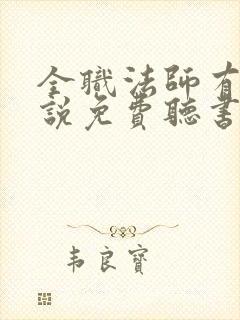 全職法師有
說免費聽書
韦良寶